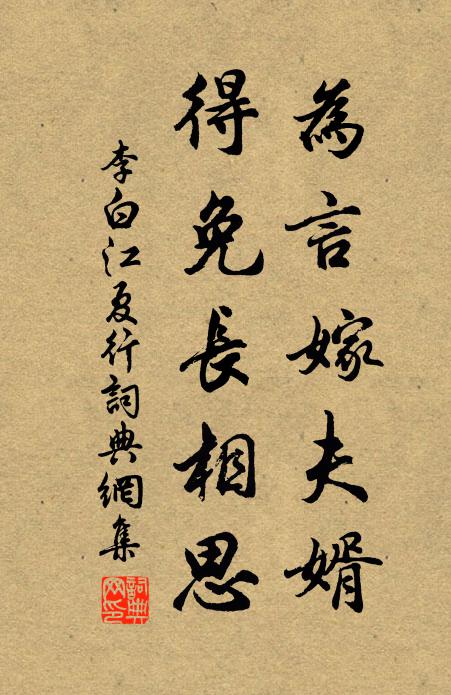 為言嫁夫婿
得免長相思
李白江夏行詞典網集
詞典網印